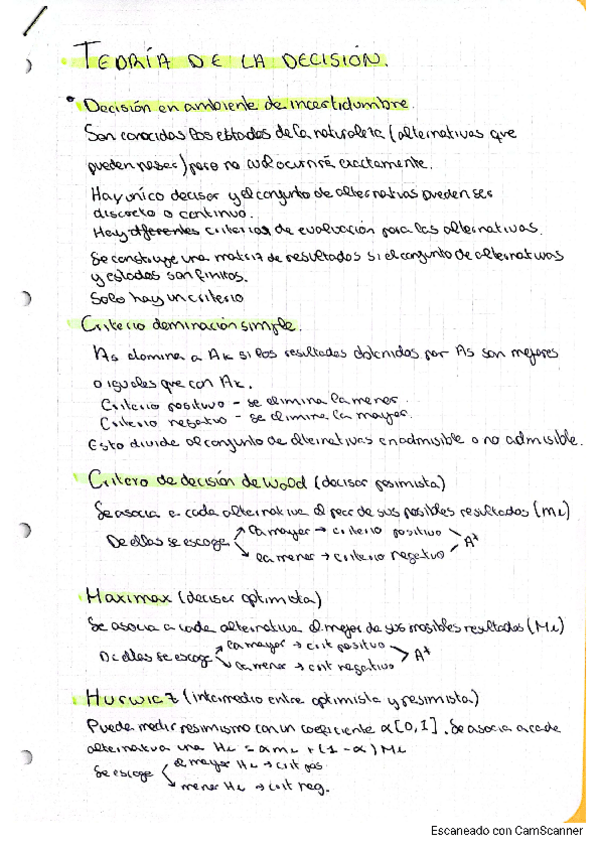 TEORÍA DE LA DECISIÓN.
• Decisión en ambiente de incertidumbre.
Son conocidos los estados de la naturaleza (alternativas que
pueden pasar) pero no cuál ocurrirá exactamente.
Hay único decisor y el conjunto de alternativas pueden ser
discreto o continuo.
Hay diferentes criterios de evaluación para las alternativas.
Se construye una matriz de resultados si el conjunto de alternativas
y estados son finitos.
Solo hay un criterio
Criterio dominación simple.
As domina a Ak si los resultados obtenidos por As son mejores
o iguales que con Ak.
Criterio positivo - se elimina la menor.
Criterio negativo - se elimina la mayor.
Esto divide al conjunto de alternativas en admisible o no admisible.
Critero de decisión de Wald (decisor pesimista)
Se asocia a cada alternativa el peor de sus posibles resultados (mi)
De ellas se escoge
la mayor → criterio positivo
la menor → criterio negativo
A*
Maximax (decisor optimista)
Se asocia a cada alternativa el mejor de sus posibles resultados (Mi)
De ellas se escoge
la mayor → crit positivo
la menor → crit negativo
A*
Hurwicz (intermedio entre optimista y pesimista)
Puede medir pesimismo con un coeficiente α [0,1]. Se asocia a cada
alternativa una Hi = αmi + (1-α) Mi
Se escoge
el mayor Hi → crit pos
menor Hi → crit neg.
Escaneado con CamScanner